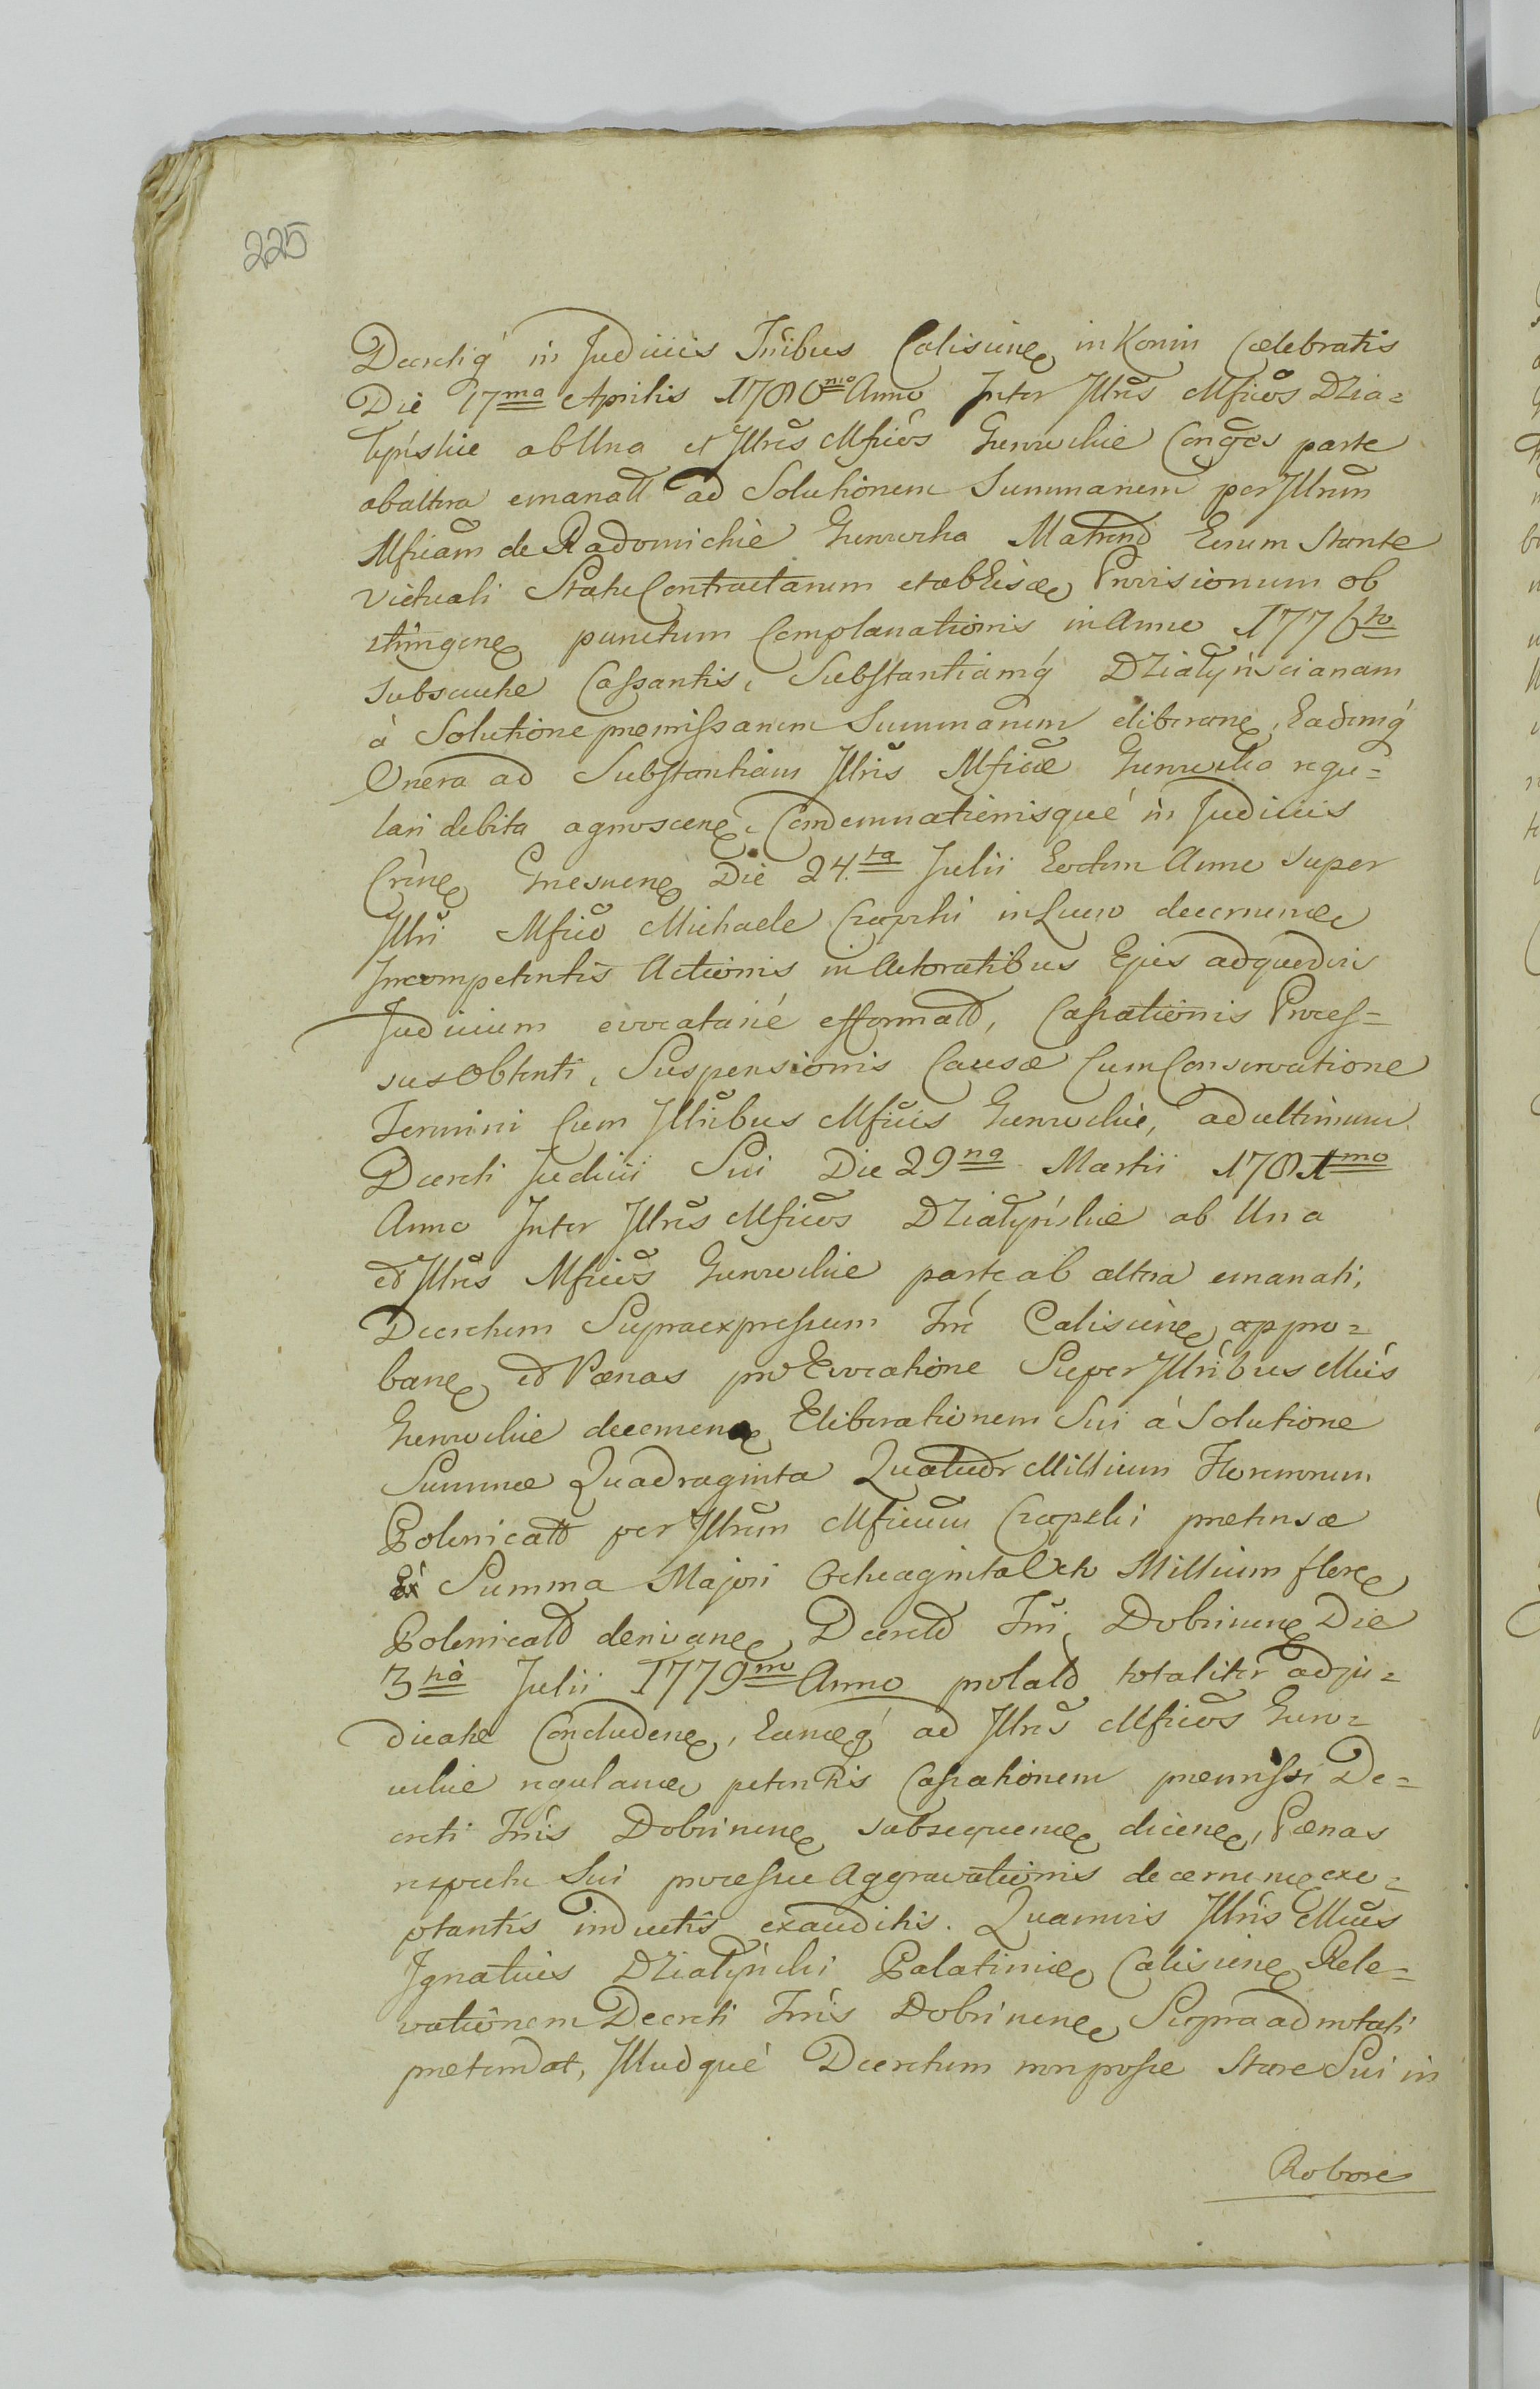 225
Decretiq́ in Judiciis Tribus Calisiens in Konin Celebratis
Die 17ma Aprilis 1780mo Anno Inter Illres Mficos Dzia=
łyńskie ab Una et Illres Mficos Gurowskie Conges parte
ab altera emanati ad Solutionem Summarum per Illrem
Mficam de Radomickie Gurowska Matrem Eorum Stante
viduali Statu Contractarum et ab Eisdem Provisionum ob
stringens punctum Complanationis in Anno 1776to
Subsecutae Cassantis, Substantiamq́ Działyńscianam
à Solutione premissarum Summarum eliberans, Eademq́
Onera ad Substantiam Illris Mficae Gurowska regu=
lari debita agnoscens, Condemnationisqué in Judiciis
Crens Gnesnens Die 24.ta Julii Eodem Anno Super
Illri Mfico Michaele Czapski in Lucro decernendae
Incompetentis Actionis in Actoratibus Ejus ad quodvis
Judicium evocatarié efformato, Cassationis Proces=
sus Obtenti, Suspensionis Causae Cum Conservatione
Termini Cum Illribus Mficis Gurowskie, ad ultimum
Decreti Judicii Sui Die 29na Martii 1781mo
Anno Inter Illres Mficos Działyńskie ab Una
et Illres Mficos Gurowskie parte ab altera emanati,
Decretum Supraexpressum Tre Calisiens appro=
bans et Paenas pro Evocatione Super Illribus Mcis
Gurowskie decernens Eliberationem Sui à Solutione
Summae Quadraginta Quatuor Millium Florenorum
Polonicall per Illrem Mficum Czapski pretensae
Ex Summa Majori Octuaginta Octo Millium flor
Polonicall derivans, Decreto Tri Dobrinens Die
3tia Julii 1779no Anno prolato totaliter adju=
dicatae Concludens, Eamq́ ad Illres Mficos Guro=
wskie regulandae petentis Cassationem premissi De=
creti Tris Dobrinens subsequendae dicens, Paenas
respectu Sui processu Aggravationis decernendae exo=
ptantis inductis exauditis. Quamvis Illris Mcus
Ignatius Działyński Palatinides Calisiens Rele=
vationem Decreti Tris Dobrinens Supra adnotati
pretendat, Illudqué Decretum non posse Stare Sui in
Robore